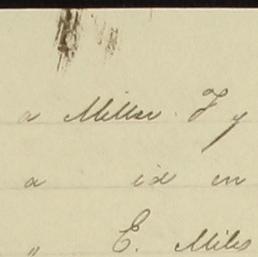 a Miller. F y
a id in
" E. Miles